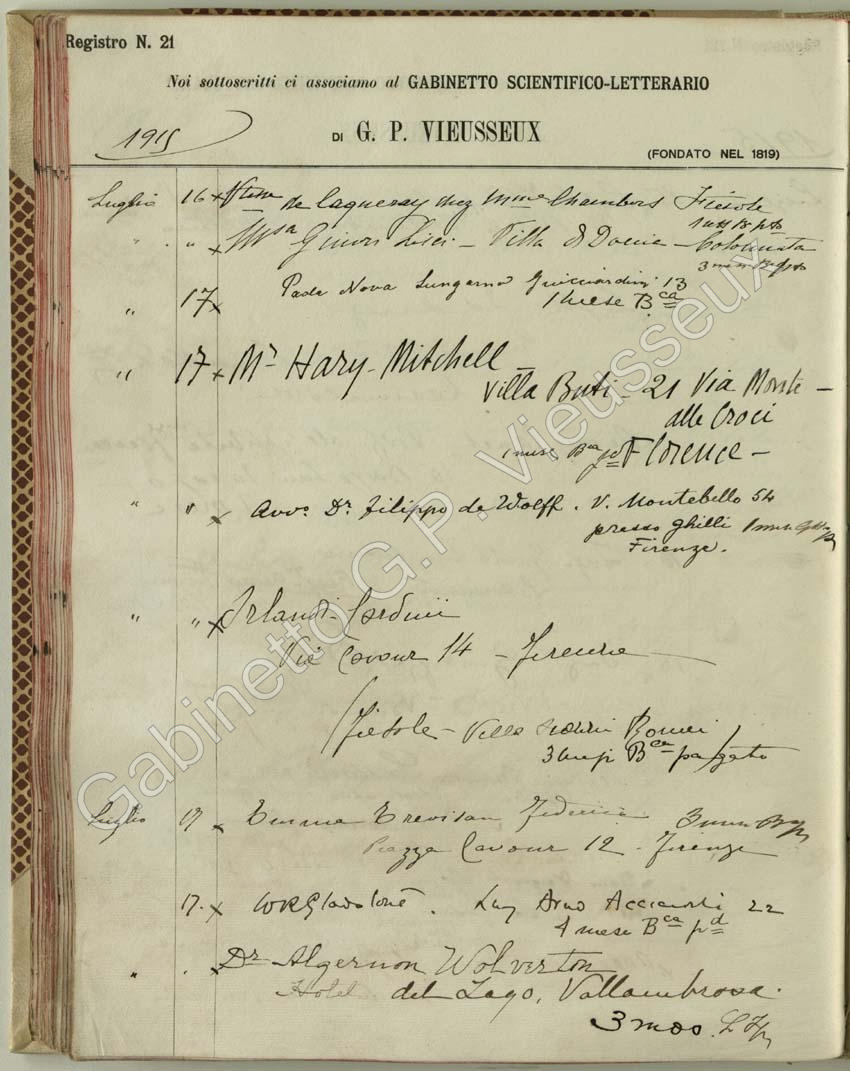 Registro N. 21
Noi sottoscritti ci associamo al GABINETTO SCIENTIFICO-LETTERARIO
1915
DI G. P. VIEUSSEUX
(FONDATO NEL 1819)
Luglio 16 x de Laqueray chez Mme Chambers Fiesole
" " x Ginori Lisci - Villa di Doccia - Colonnata
17 x Paola Nova Lungarno Guicciardini 13
" 1 mese Bca
" 17 x Mr Hary Mitchell -
Villa Buti - 21 Via Monte -
alle Croci
1 mese Bca pd Florence -
" " x Avvo Dr. Filippo de Wolff. V. Montebello 54
presso Ghilli 1 mese
Firenze.
" " x Orlandi-Cardini
Via Cavour 14 - Firenze
Fiesole - Villa
3 mesi Bca pagato
Luglio 17 x Emma Trevisan 3 mesi
Piazza Cavour 12 - Firenze
17. x WRGladstone. Lung Arno Acciaioli 22
1 mese Bca pd
" . x Dr Algernon Wolverton
Hotel del Lago, Vallambrosa.
3 mos.
Gabinetto G.P. Vieusseux